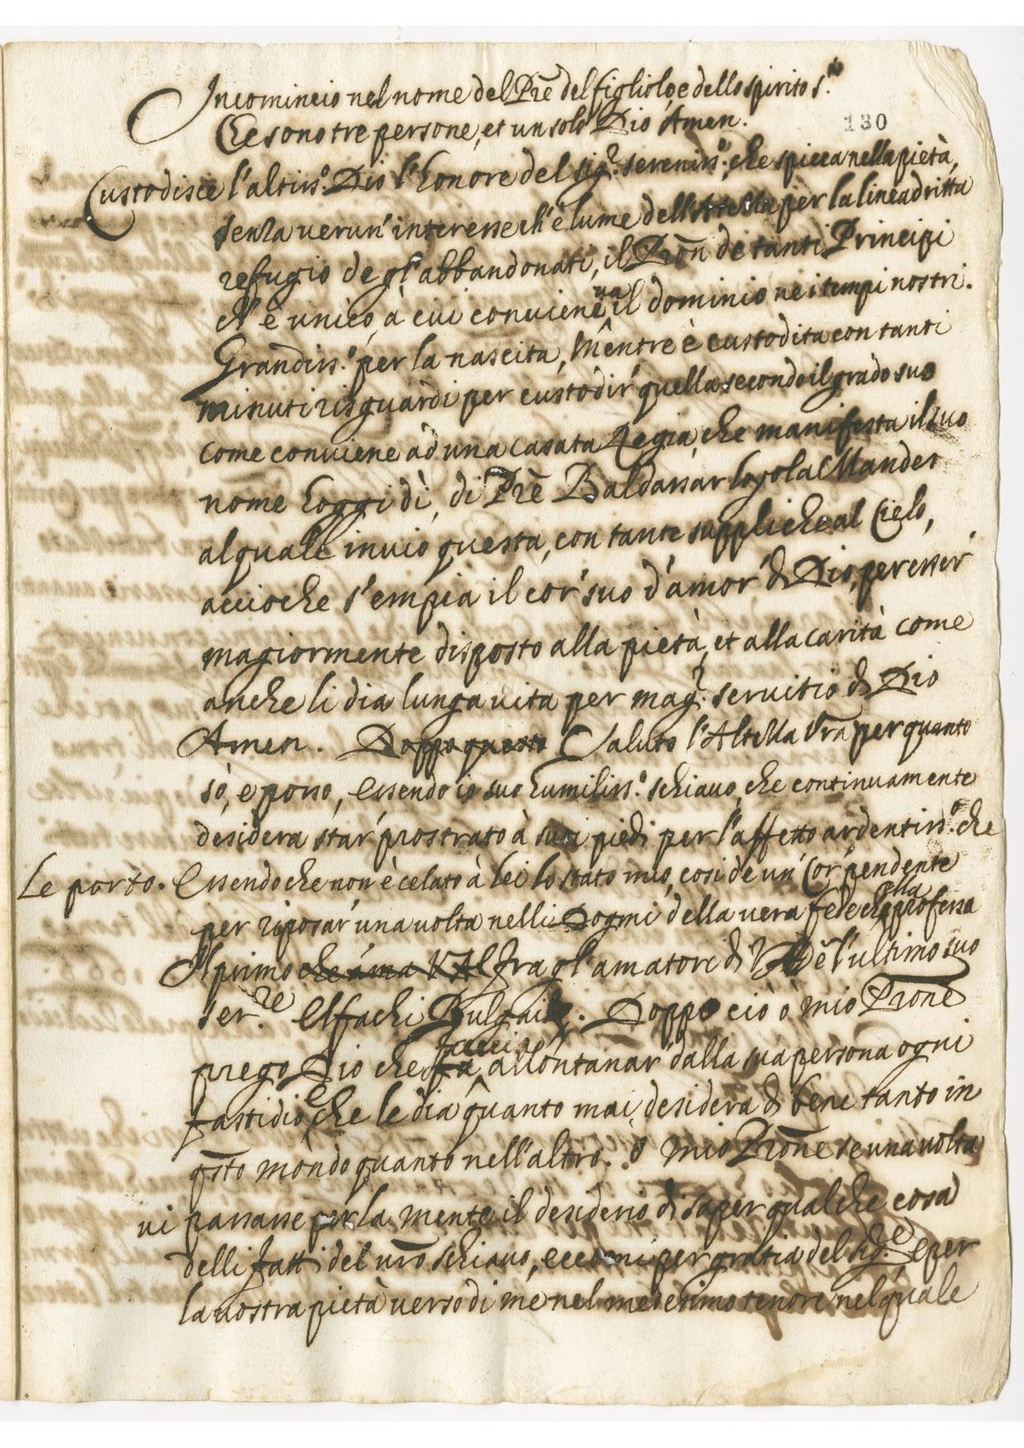 Incomincio nel nome del Prē del figliolo e dello spirito s.to
Che sono tre persone, et un solo Dio Amen.
130
Custodisce l'altiss.o Dio l'honore del sig.r sereniss.o, che spicca nella pietà,
senza verun' interesse ch'è lume dell' per la linea dritta
refugio degl'abbandonati, il Prōn de tanti Principi
ch'è unico à cui conviene il dominio ne i tempi nostri.
Grandiss.o per la nascita, mentre è custodita con tanti
minuti risguardi per custodir' quella secondo il grado suo
come conviene ad una casata Regia, che manifesta il suo
nome hoggi dì, di Prē Baldassar Loyola Mandes
al quale invio questa, con tante suppliche al Cielo,
accioche s'empia il cor' suo d'amor' di Dio, per esser'
magiormente disposto alla pietà, et alla carità come
anche li dia lunga vita per mag.r servitio di Dio
Amen. Doppo questo Saluto l'Altezza Vrā per quanto
sò, e posso, essendo io suo humiliss.o schiavo, che continuamente
desidera star' prostrato à suoi piedi per l'affetto ardentiss.o che
Le porto. Essendo che non è celato à lei lo stato mio, cosi de un' Cor' pendente
per riposar' una volta nelli Dogmi della vera fede professa
Il primo che ama fra gl'amatori di è l'ultimo suo
ser.re Elfachi Bulgaif. Doppo ciò ò mio Prōne
prego Dio che facci allontanar' dalla sua persona ogni
fastidio, e che le dia quanto mai desidera di bene tanto in
qsto mōndo quanto nell'altro. ò mio Prōne se una volta
vi passasse per la mente il desiderio di saper qualche cosa
delli fatti del vrō schiavo, eccomi per gratia del Sig.re, e per
la vostra pietà verso di me nel medesimo tenore nel quale